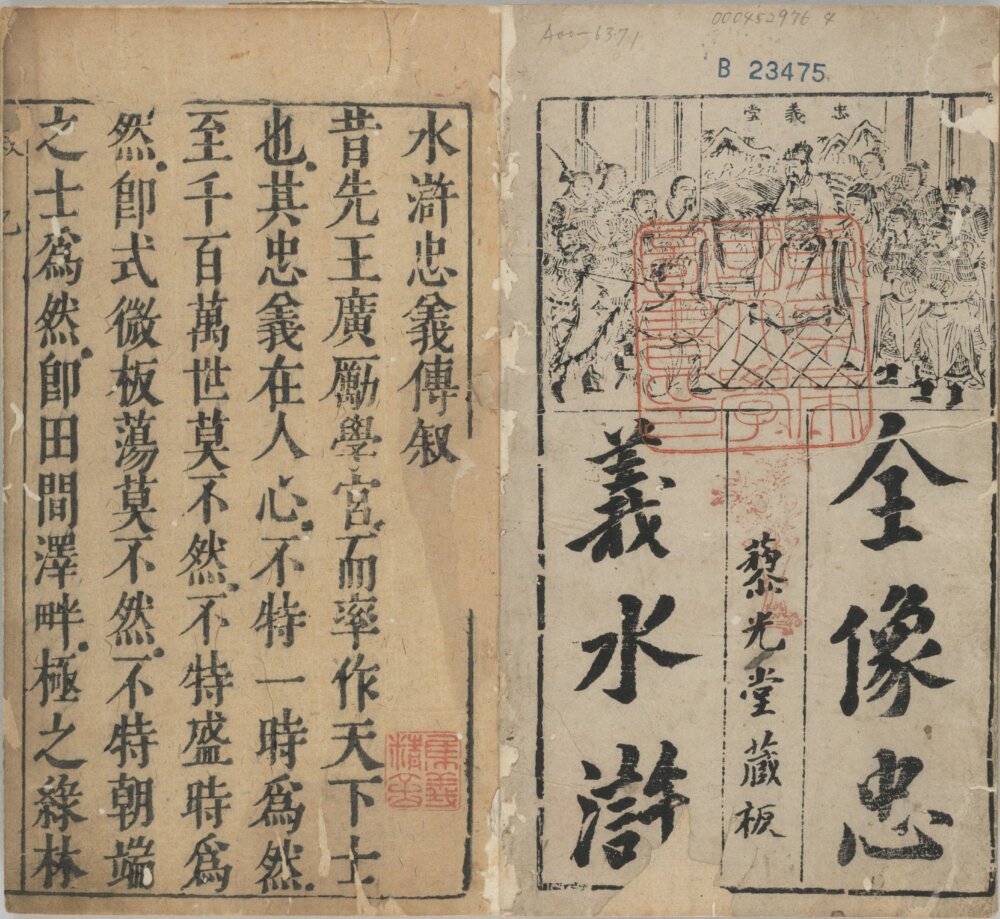 Acc-6371
000452976 4
B 23475
忠義堂
全像忠
藜光堂藏板
義水滸
水滸忠義傳叙
昔先王廣勵學宮而率作天下士
也其忠義在人心不特一時爲然
至千百萬世莫不然不特盛時爲
然卽式微板蕩莫不然不特朝端
之士爲然卽田間澤畔極之綠林